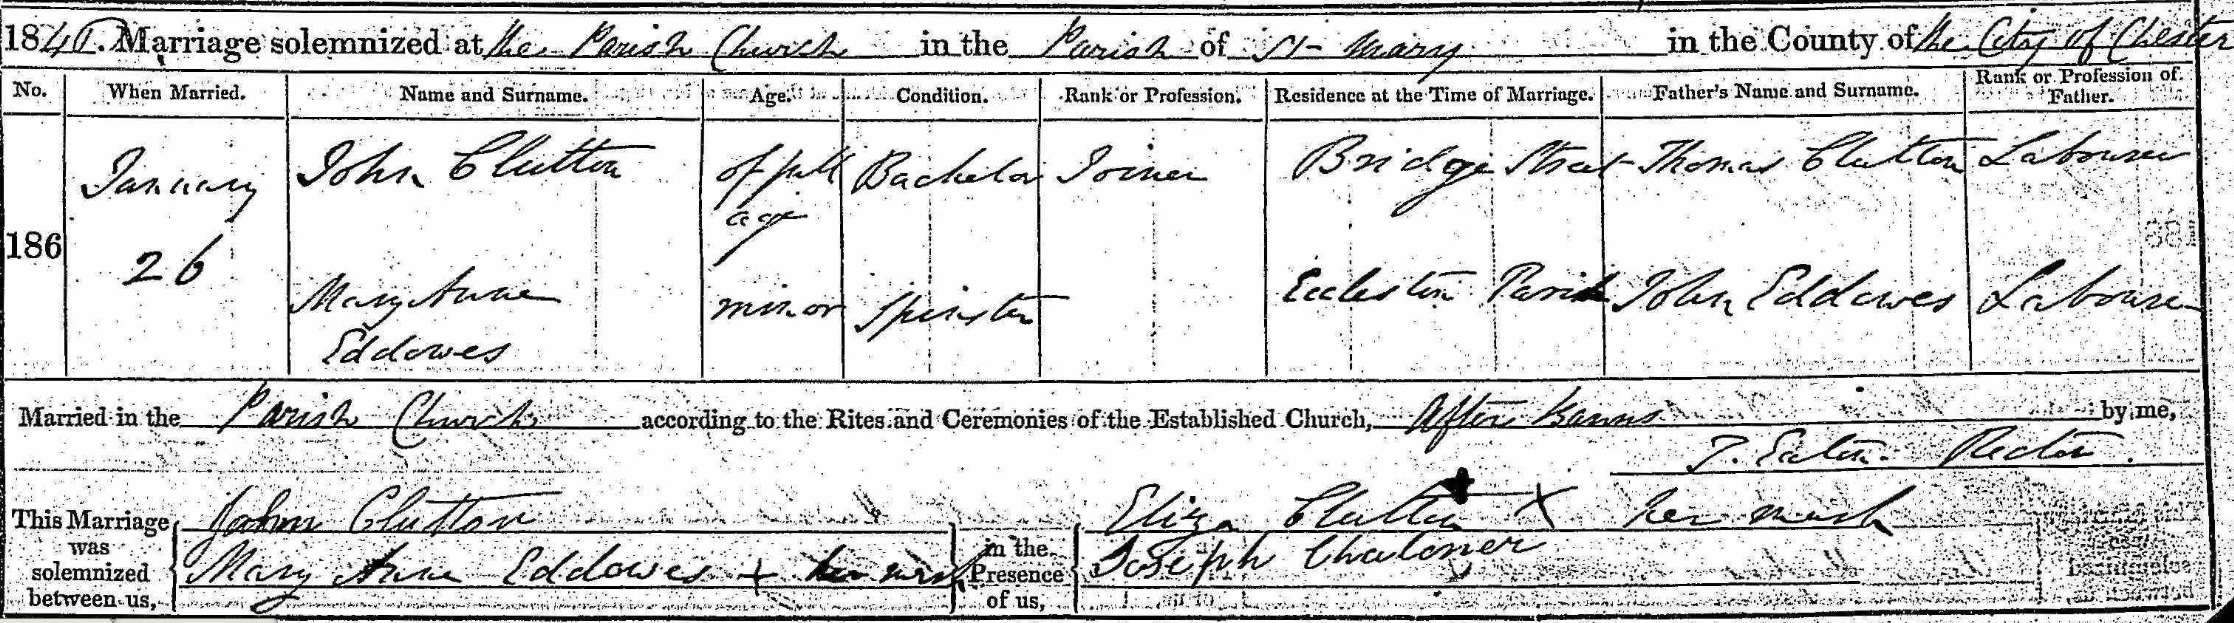 1840. Marriage solemnized at the Parish Church in the Parish of St Mary in the County of the City of Chester
No. When Married. Name and Surname. Age. Condition. Rank or Profession. Residence at the Time of Marriage. Father's Name and Surname. Rank or Profession of Father.
186 January 26 John Clutton of full age Bachelor Joiner Bridge Street Thomas Clutton Labourer
Mary Anne Eddowes minor Spinster Eccleston Parish John Eddowes Labourer
Married in the Parish Church according to the Rites and Ceremonies of the Established Church, After Banns by me,
T. Eaton Rector.
This Marriage was solemnized between us, John Clutton in the Presence of us, Eliza Clutton X her mark
Mary Anne Eddowes + her mark Joseph Chaloner